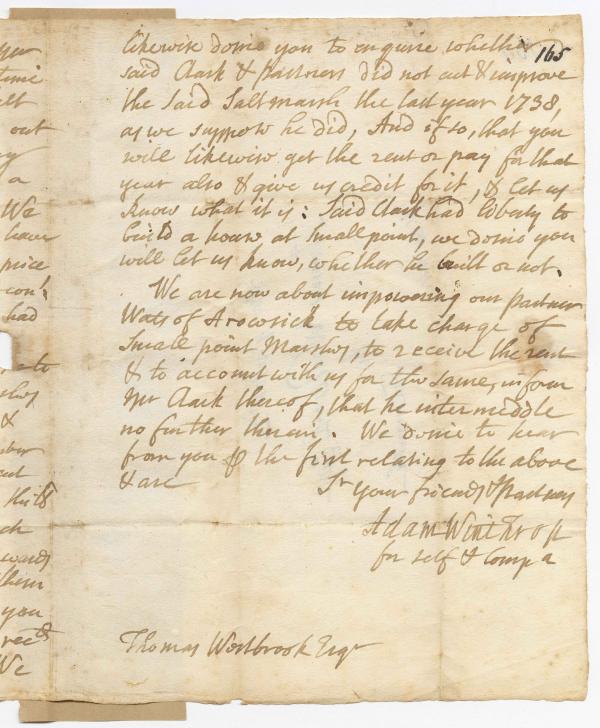 165
likewise desire you to enquire whether
said Clark & partners did not cut & improve
the said Saltmarsh the last year 1738,
as we suppose he did, And if so, that you
will likewise get the rent or pay for that
year also & give us credit for it, & let us
know what it is: Said Clark had liberty to
build a house at Small point, we desire you
will let us know, whether he built or not.
We are now about impowering our partner
Wats of Arowsick to take charge of
Small point Marshes, to receive the rent
& to account with us for the same, inform
Mr Clark thereof, that he intermeddle
no further therein. We desire to hear
from you ⅌ the first relating to the above
& are
Sr your friends & Partners
Adam Winthrop
for self & Compa
Thomas Westbrook Esqr
time
out
a
We
have
price
had
to
&
you
We